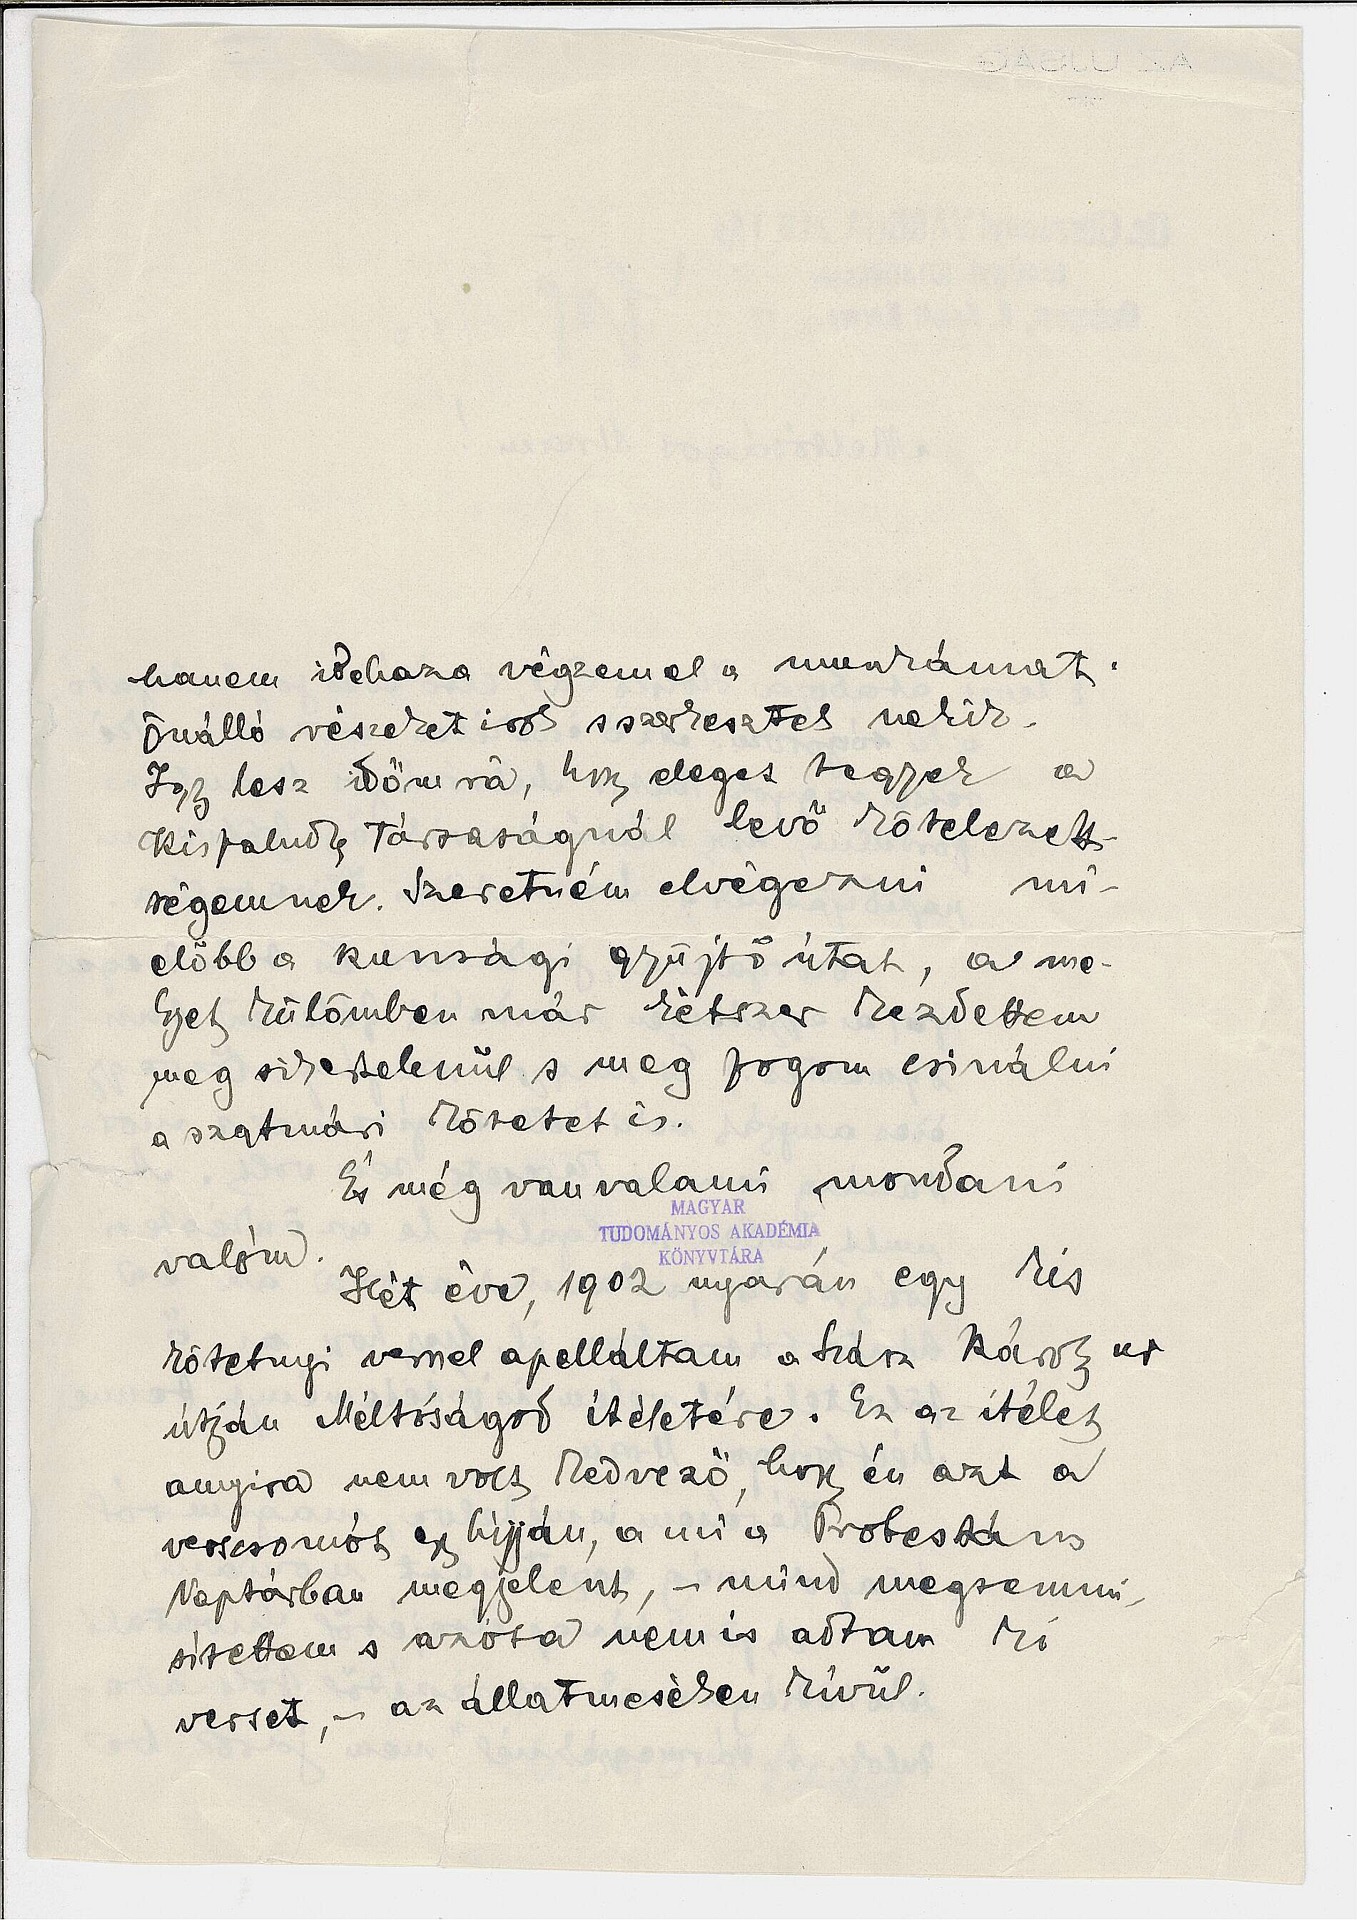 hanem idehaza végzem el a munkámat.
Önálló részeket irok s szerkesztek nekik.
Igy lesz időm rá, hogy eleget tegyek a
Kisfaludy Társaságnál levő kötelezett-
ségemnek. Szeretném elvégezni mi-
előbb a kunsági gyűjtő útat, a me-
lyet külömben már kétszer kezdettem
meg sikertelenül s meg fogom csinálni
a szatmári kötetet is.
És még van valami mondani
valóm.
MAGYAR
TUDOMÁNYOS AKADÉMIA
KÖNYVTÁRA
Hét éve, 1902 nyarán egy kis
kötetnyi versel apelláltam a Szász Károly ur
útján Méltóságod ítéletére. Ez az ítélet
annyira nem volt kedvező, hogy én azt a
verscsomót egy híjján, a mi a Protestáns
Naptárban megjelent, – mind megsemmi-
sítettem s azóta nem is adtam ki
verset, – az állatmeséken kívül.